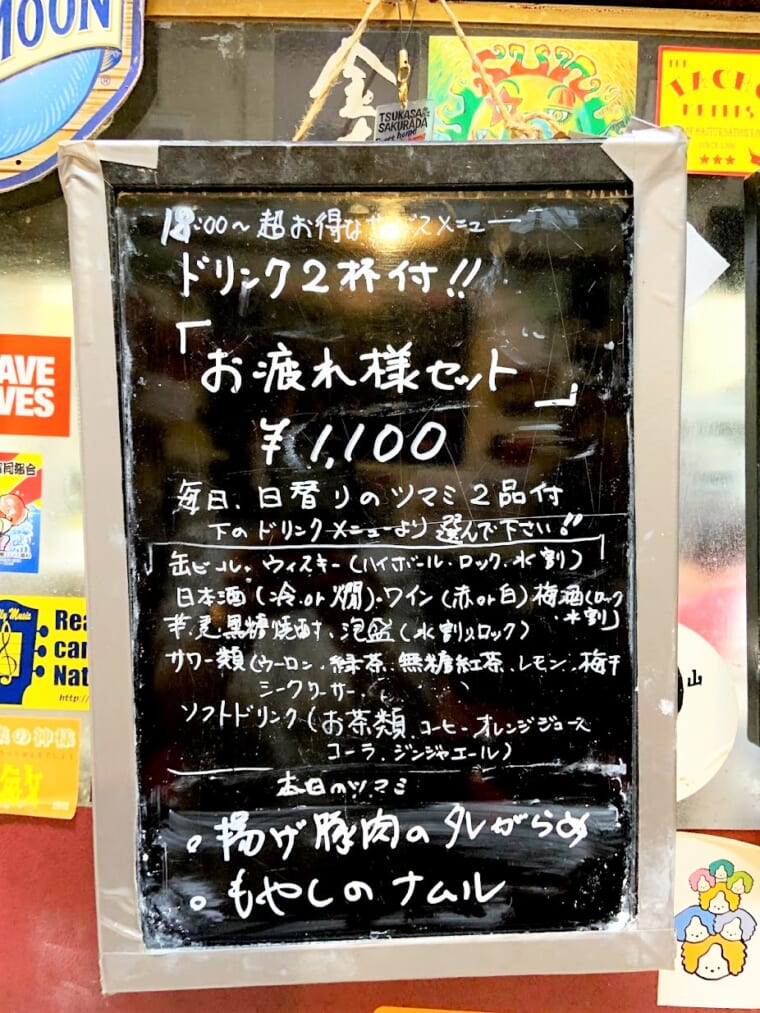 MOON
金
TSUKASA
SAKURADA
THE
SINCE
AVE
VES
18:00〜超お得なサービスメニュー
ドリンク2杯付!!
「お疲れ様セット」
¥1,100
毎日、日替りのツマミ2品付
下のドリンクメニューより選んで下さい!!
缶ビール、ウィスキー(ハイボール・ロック・水割)
日本酒(冷or燗)・ワイン(赤or白)梅酒(ロック・水割)
芋・麦・黒糖焼酎、泡盛(水割・ロック)
サワー類(ウーロン・緑茶・無糖紅茶・レモン・梅干
シークワーサー
ソフトドリンク(お茶類、コーヒー オレンジジュース
コーラ、ジンジャエール)
本日のツマミ
・揚げ豚肉のタレがらめ
・もやしのナムル
Rea
can
Nat
http:/
の神様
山